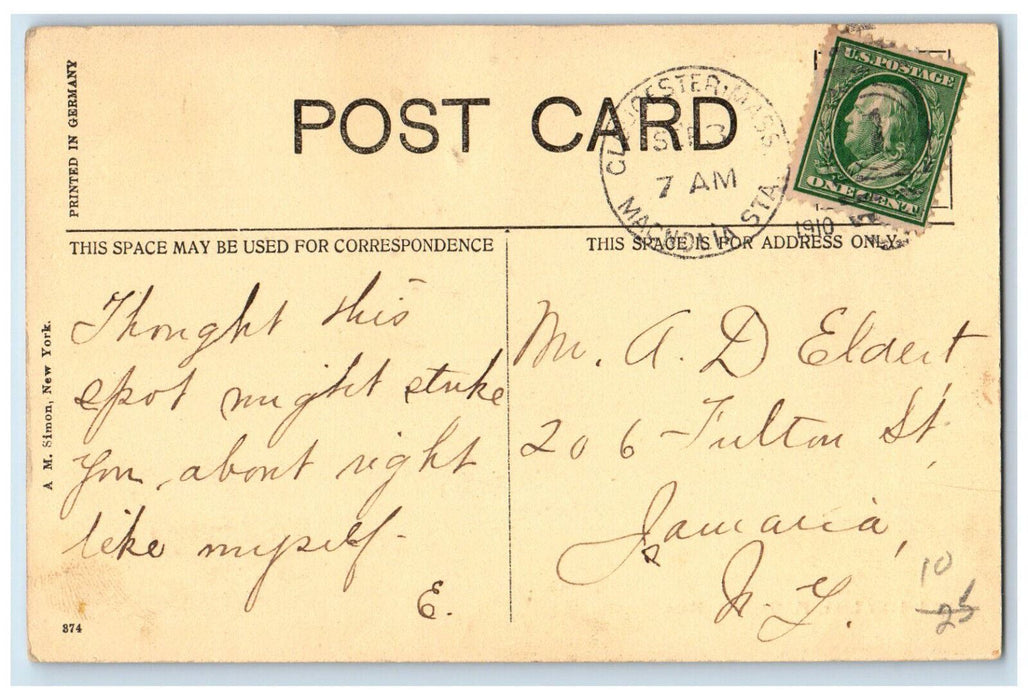 PRINTED IN GERMANY
POST CARD
GLOUCESTER, MASS.
SEP 3
7 AM
MAGNOLIA STA.
1910
U.S. POSTAGE
1
ONE CENT
THIS SPACE MAY BE USED FOR CORRESPONDENCE
THIS SPACE IS FOR ADDRESS ONLY.
A. M. Simon, New York.
Thought this
spot might strike
you, about right
like myself.
E.
Mr. A. D Eldert
206 Fulton St.
Jamaica,
N. Y.
10
25
374